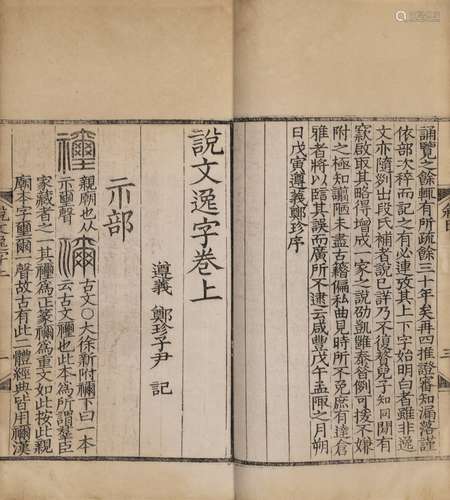 誦覽之餘輒有所疏餘三十年矣再四推證審知漏落謹
依部次稡而記之有必連攷其上下字始明白者雖非逸
文亦隨列出段氏補者說已詳乃不復贅兒子知同閒有
窾啟取其略得增成一家之說劭凱雖泰例可援不嫌
附之極知謭陋未盡古籍偏私曲見時所不免庶有達倉
雅者將以臨其誤而廣所不逮云咸豐戊午孟陬之月朔
日戊寅遵義鄭珍序
說文逸字卷上
遵義 鄭珍子尹 記
示部
親廟也从
示璽聲
禰
古文○大徐新附禰下曰一本
云古文也此本為所謂羣臣
家藏者之一其為正篆禰為重文如此按此親
廟本字璽爾一聲故古有此二體經典皆用禰漢